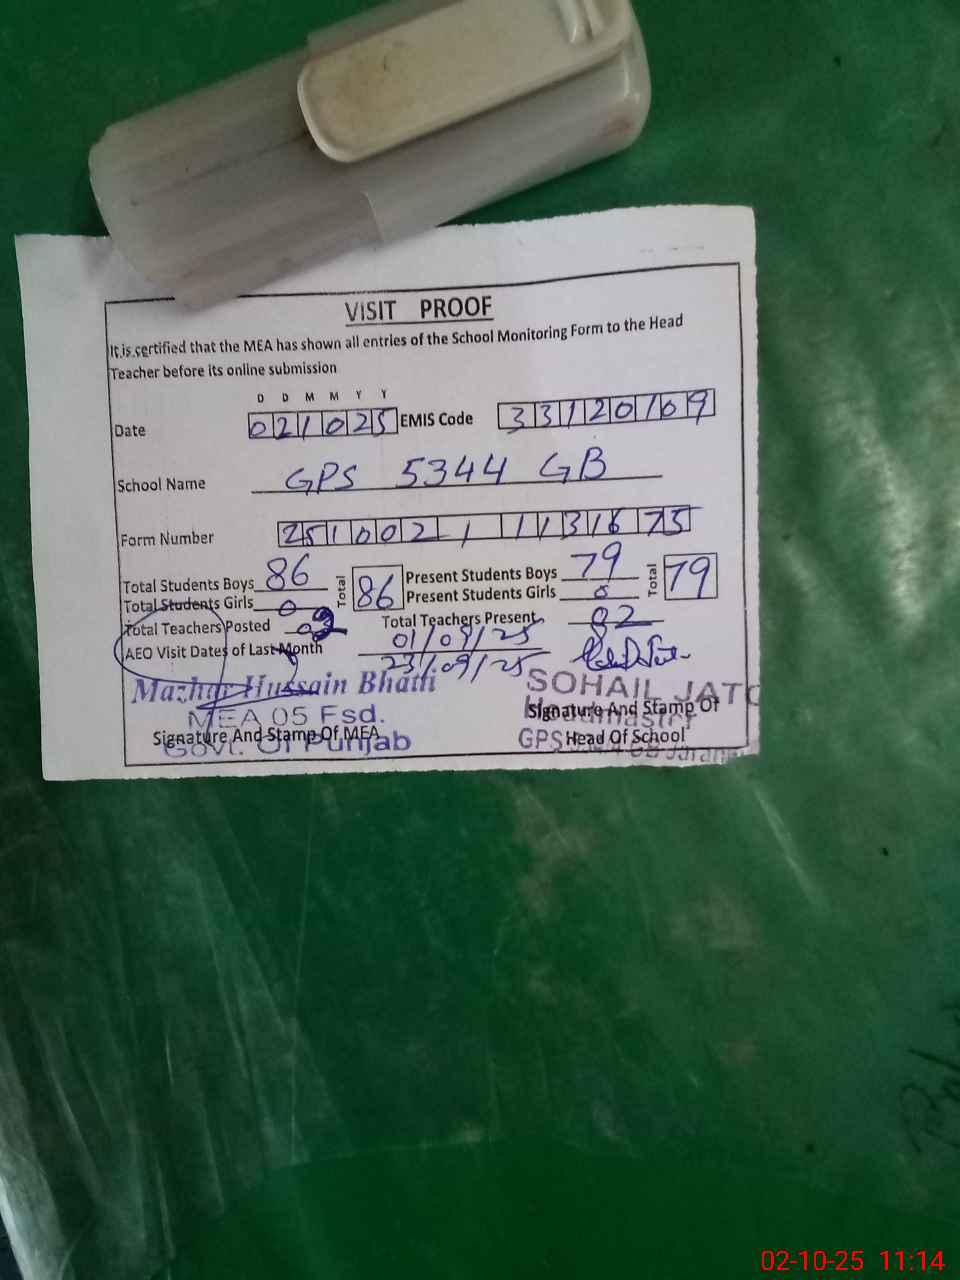 VISIT PROOF
It is certified that the MEA has shown all entries of the School Monitoring Form to the Head
Teacher before its online submission
D D M M Y Y
Date 021025 EMIS Code 33120109
School Name GPS 5344 GB
Form Number 251002 1 1131675
Total Students Boys 86 Total 86 Present Students Boys 79 Total 79
Total Students Girls 0 Present Students Girls 0
Total Teachers Posted Total Teachers Present 02
AEO Visit Dates of Last Month 01/09/25
23/09/25
Mazhar Hussain Bhatti SOHAIL JATO
MEA 05 Fsd. Signature And Stamp Of
Signature And Stamp Of MEA Head Of School
Govt. Of Punjab GPS
02-10-25 11:14